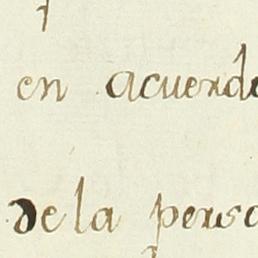 en acuerde
dela perso